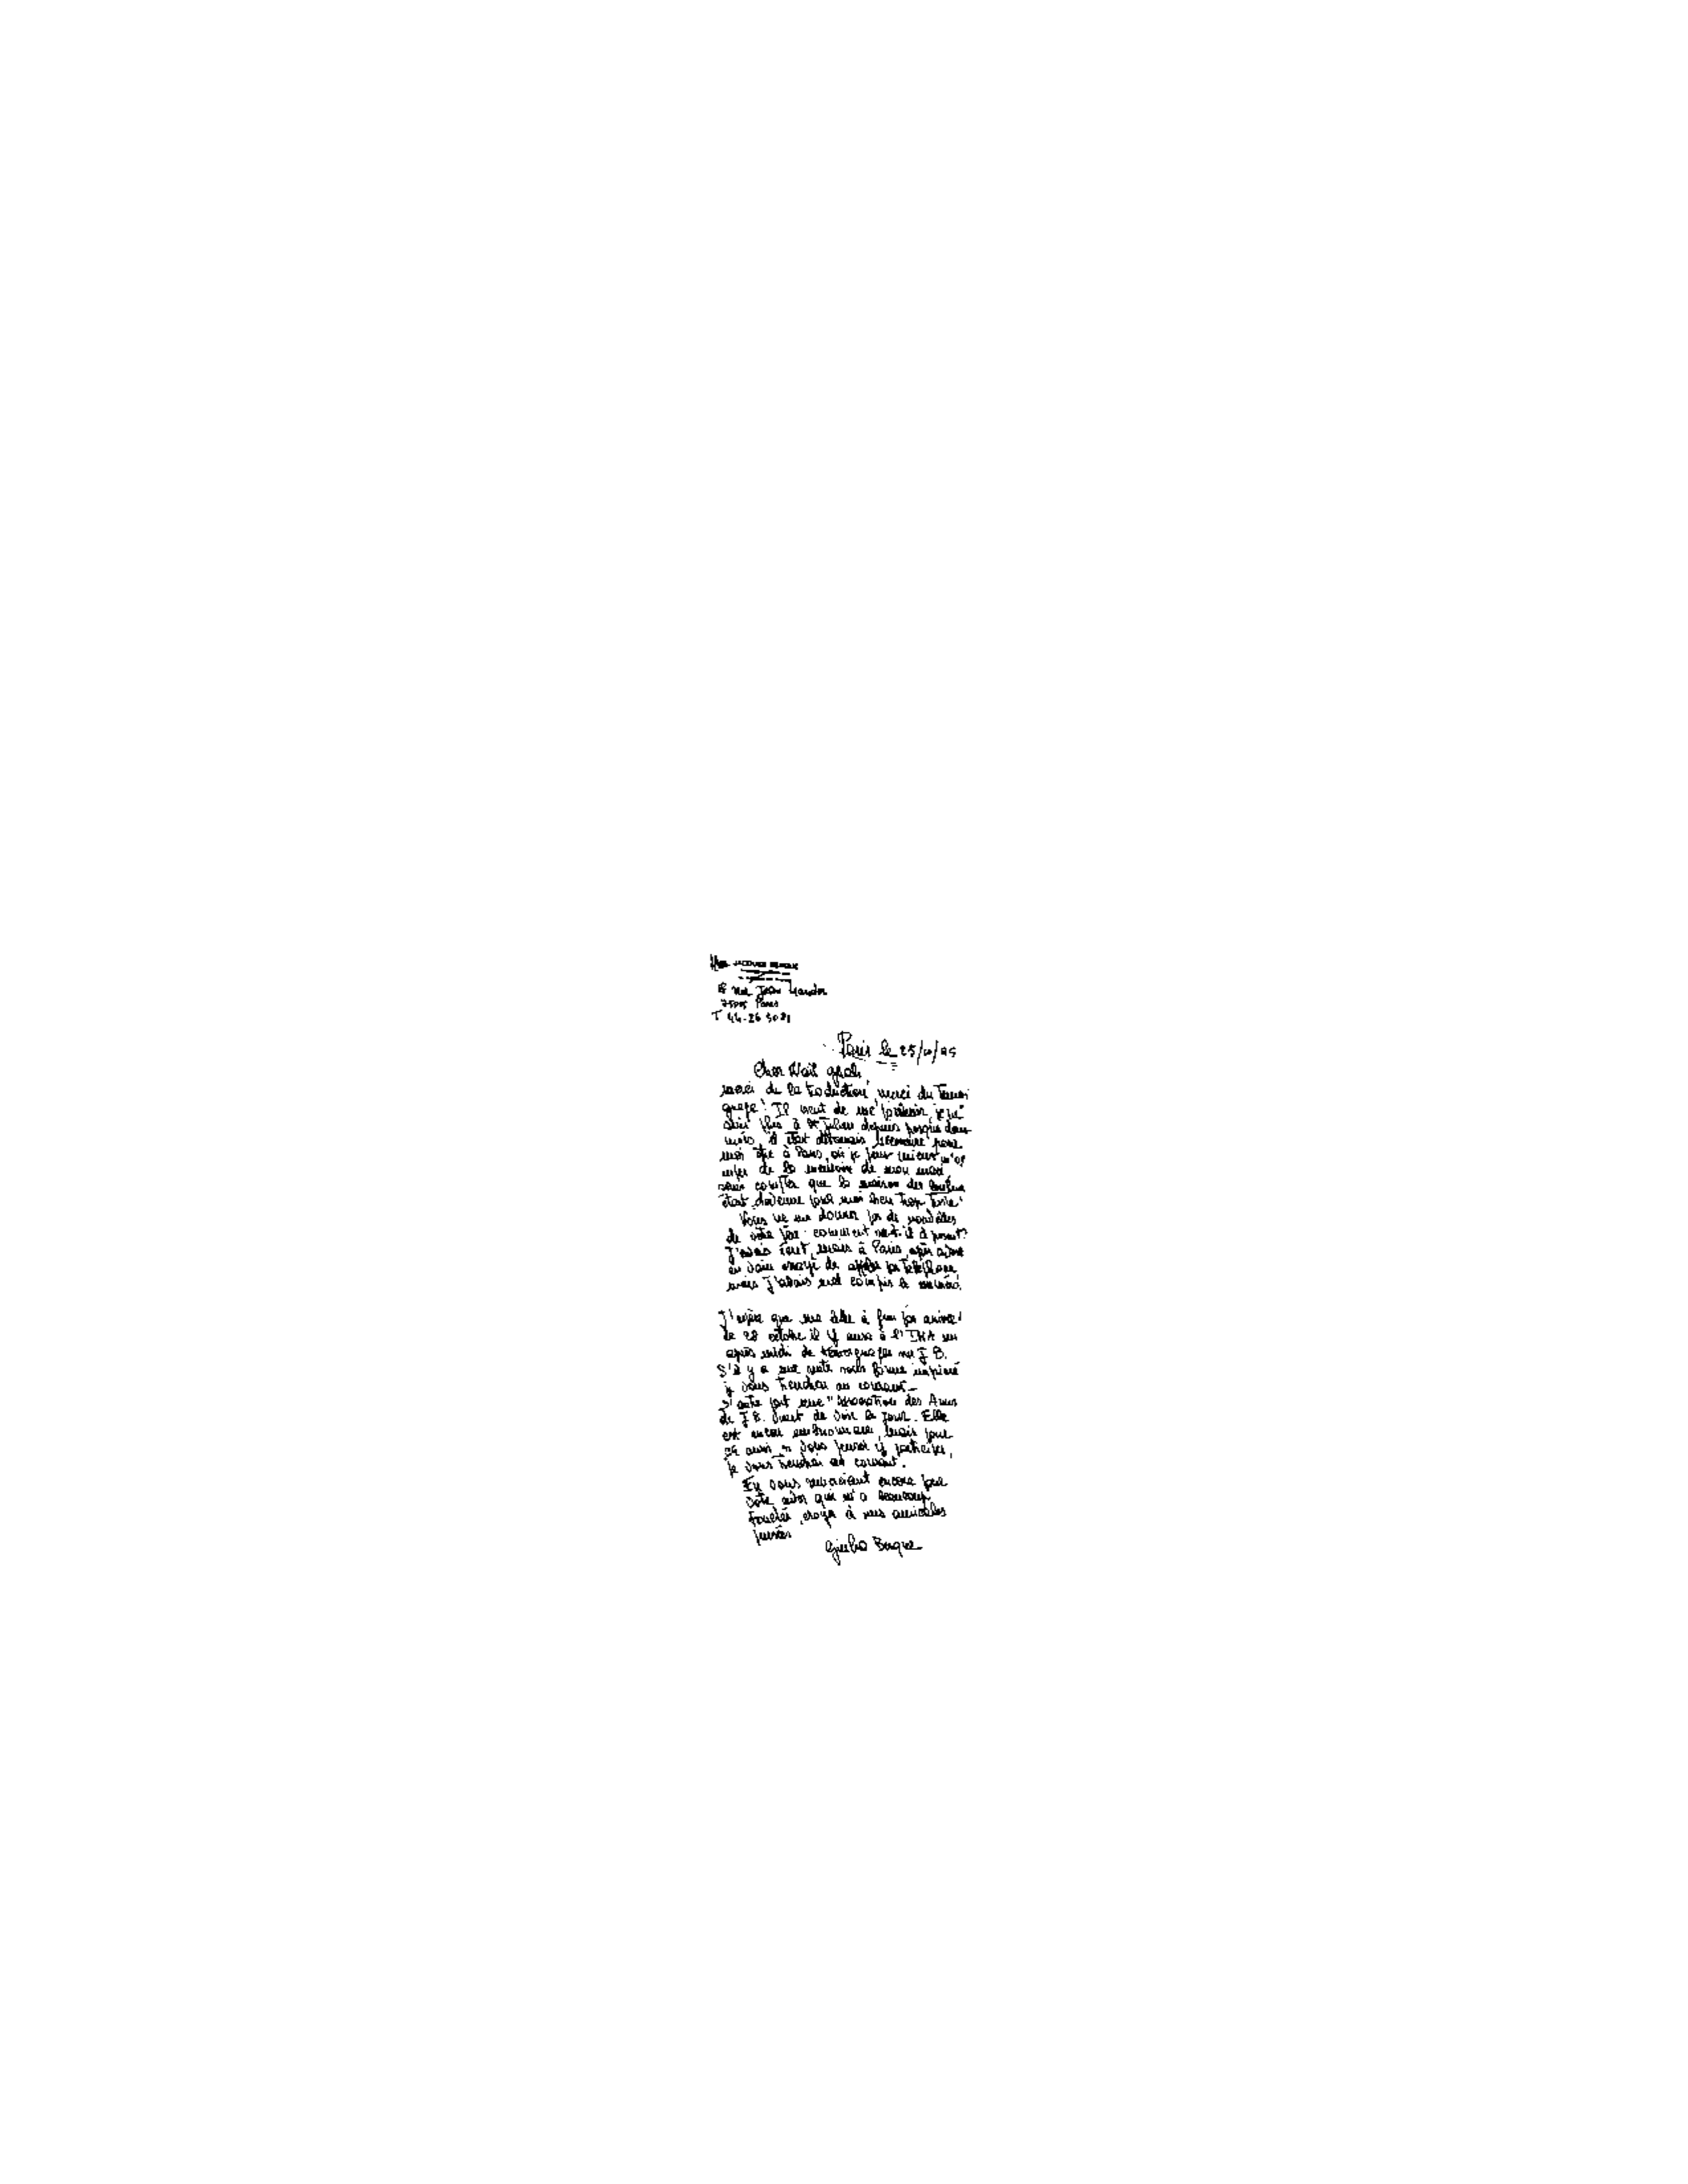 Mme JACQUES BERQUE
rue Jean
75005 Paris
T 44-26
Paris le 25/10/95
Cher Waïl
merci de la traduction, merci du
Il vient de me parvenir, je ne
suis plus à St Julien depuis presque deux
mois, il était désormais nécessaire pour
moi à Paris, où je peux mieux
de la mémoire de mon mari,
sans compter que la maison des
était devenue pour moi trop triste.
Vous ne me donnez pas de nouvelles
de votre père : comment va-t-il à présent ?
J'avais écrit, à Paris, après avoir
en vain essayé de par téléphone,
mais j'avais mal compris le numéro.
J'espère que ma lettre a fini par arriver !
Le 28 octobre il y aura à l'IMA un
après midi de témoignages sur J B.
S'il y a une suite sous forme imprimé
je vous tiendrai au courant.
D'autre part une "Association des Amis
de J B. vient de voir le jour. Elle
est encore embryonnaire, mais pour
ça aussi, si vous pensez y participer,
je vous tiendrai au courant.
En vous remerciant encore pour
votre qui m'a beaucoup
touchée, croyez à mes amicales
pensées
Giulia Berque